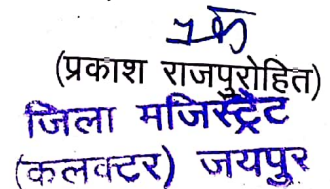 (प्रकाश राजपुरोहित)
जिला मजिस्ट्रैट
(कलक्टर) जयपुर